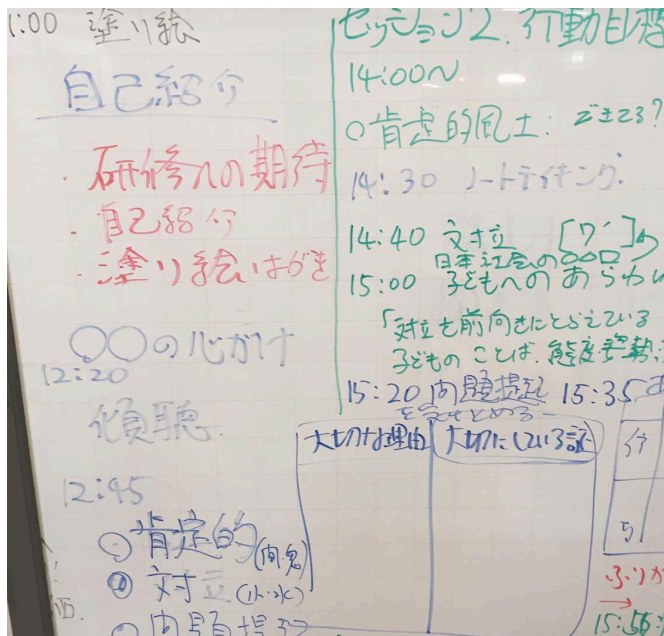 1:00 塗り絵
自己紹介
・研修への期待
・自己紹介
・塗り絵はがき
〇〇の心がけ
12:20
傾聴
12:45
肯定的
対立
問題提起
セッション2. 行動目標
14:00〜
〇肯定的風土: できてる?
14:30 ノートテイキング.
14:40 対立
日本社会の〇〇〇
15:00 子どもへのあらわ
「対立を前向きにとらえている
子どものことば.態度.姿勢
15:20 問題提起 15:35
を
大切な理由 大切にしている証
分
ち
ふりか
15:55